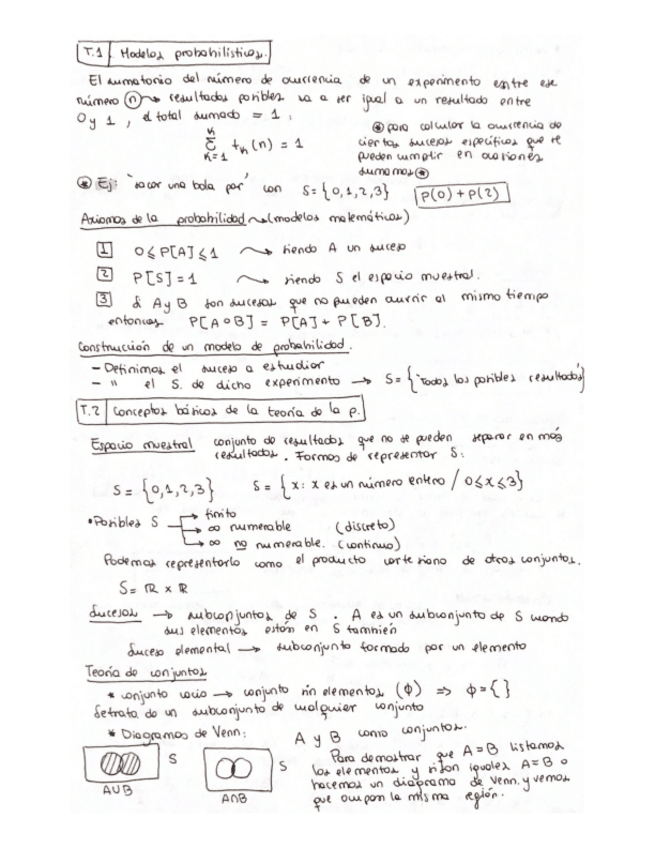 T.1 Modelos probabilísticos.
El sumatorio del número de ocurrencia de un experimento entre ese
número (n) → resultados posibles va a ser igual a un resultado entre
0 y 1, el total sumado = 1:
K Σ K=1 f_K(n) = 1
⊛ para calcular la ocurrencia de
ciertos sucesos específicos que se
pueden cumplir en ocasiones
sumamos ⊛
⊛ Ej: "sacar una bola par" con S={0,1,2,3} P(0)+P(2)
Axiomas de la probabilidad → (modelos matemáticos)
1 0≤P[A]≤1 → siendo A un suceso
2 P[S]=1 → siendo S el espacio muestral.
3 Si A y B son sucesos que no pueden ocurrir al mismo tiempo
entonces P[A o B] = P[A] + P[B].
Construcción de un modelo de probabilidad.
- Definimos el suceso a estudiar
- " el S. de dicho experimento → S={"Todos los posibles resultados"}
T.2 Conceptos básicos de la teoría de la p.
Espacio muestral conjunto de resultados que no se pueden separar en más
resultados. Formas de representar S:
S={0,1,2,3} S={x: x es un número entero / 0≤x≤3}
• Posibles S → finito
→ ∞ numerable (discreto)
→ ∞ no numerable. (continuo)
Podemos representarlo como el producto cartesiano de otros conjuntos.
S= ℝ x ℝ
Sucesos → subconjuntos de S. A es un subconjunto de S cuando
sus elementos están en S también
Suceso elemental → subconjunto formado por un elemento
Teoría de conjuntos
* conjunto vacío → conjunto sin elementos (Φ) ⇒ Φ={}
Se trata de un subconjunto de cualquier conjunto
* Diagramas de Venn: A y B como conjuntos.
S
A∪B
S
A∩B
Para demostrar que A=B listamos
los elementos y si son iguales A=B o
hacemos un diagrama de Venn. y vemos
que ocupan la misma región.